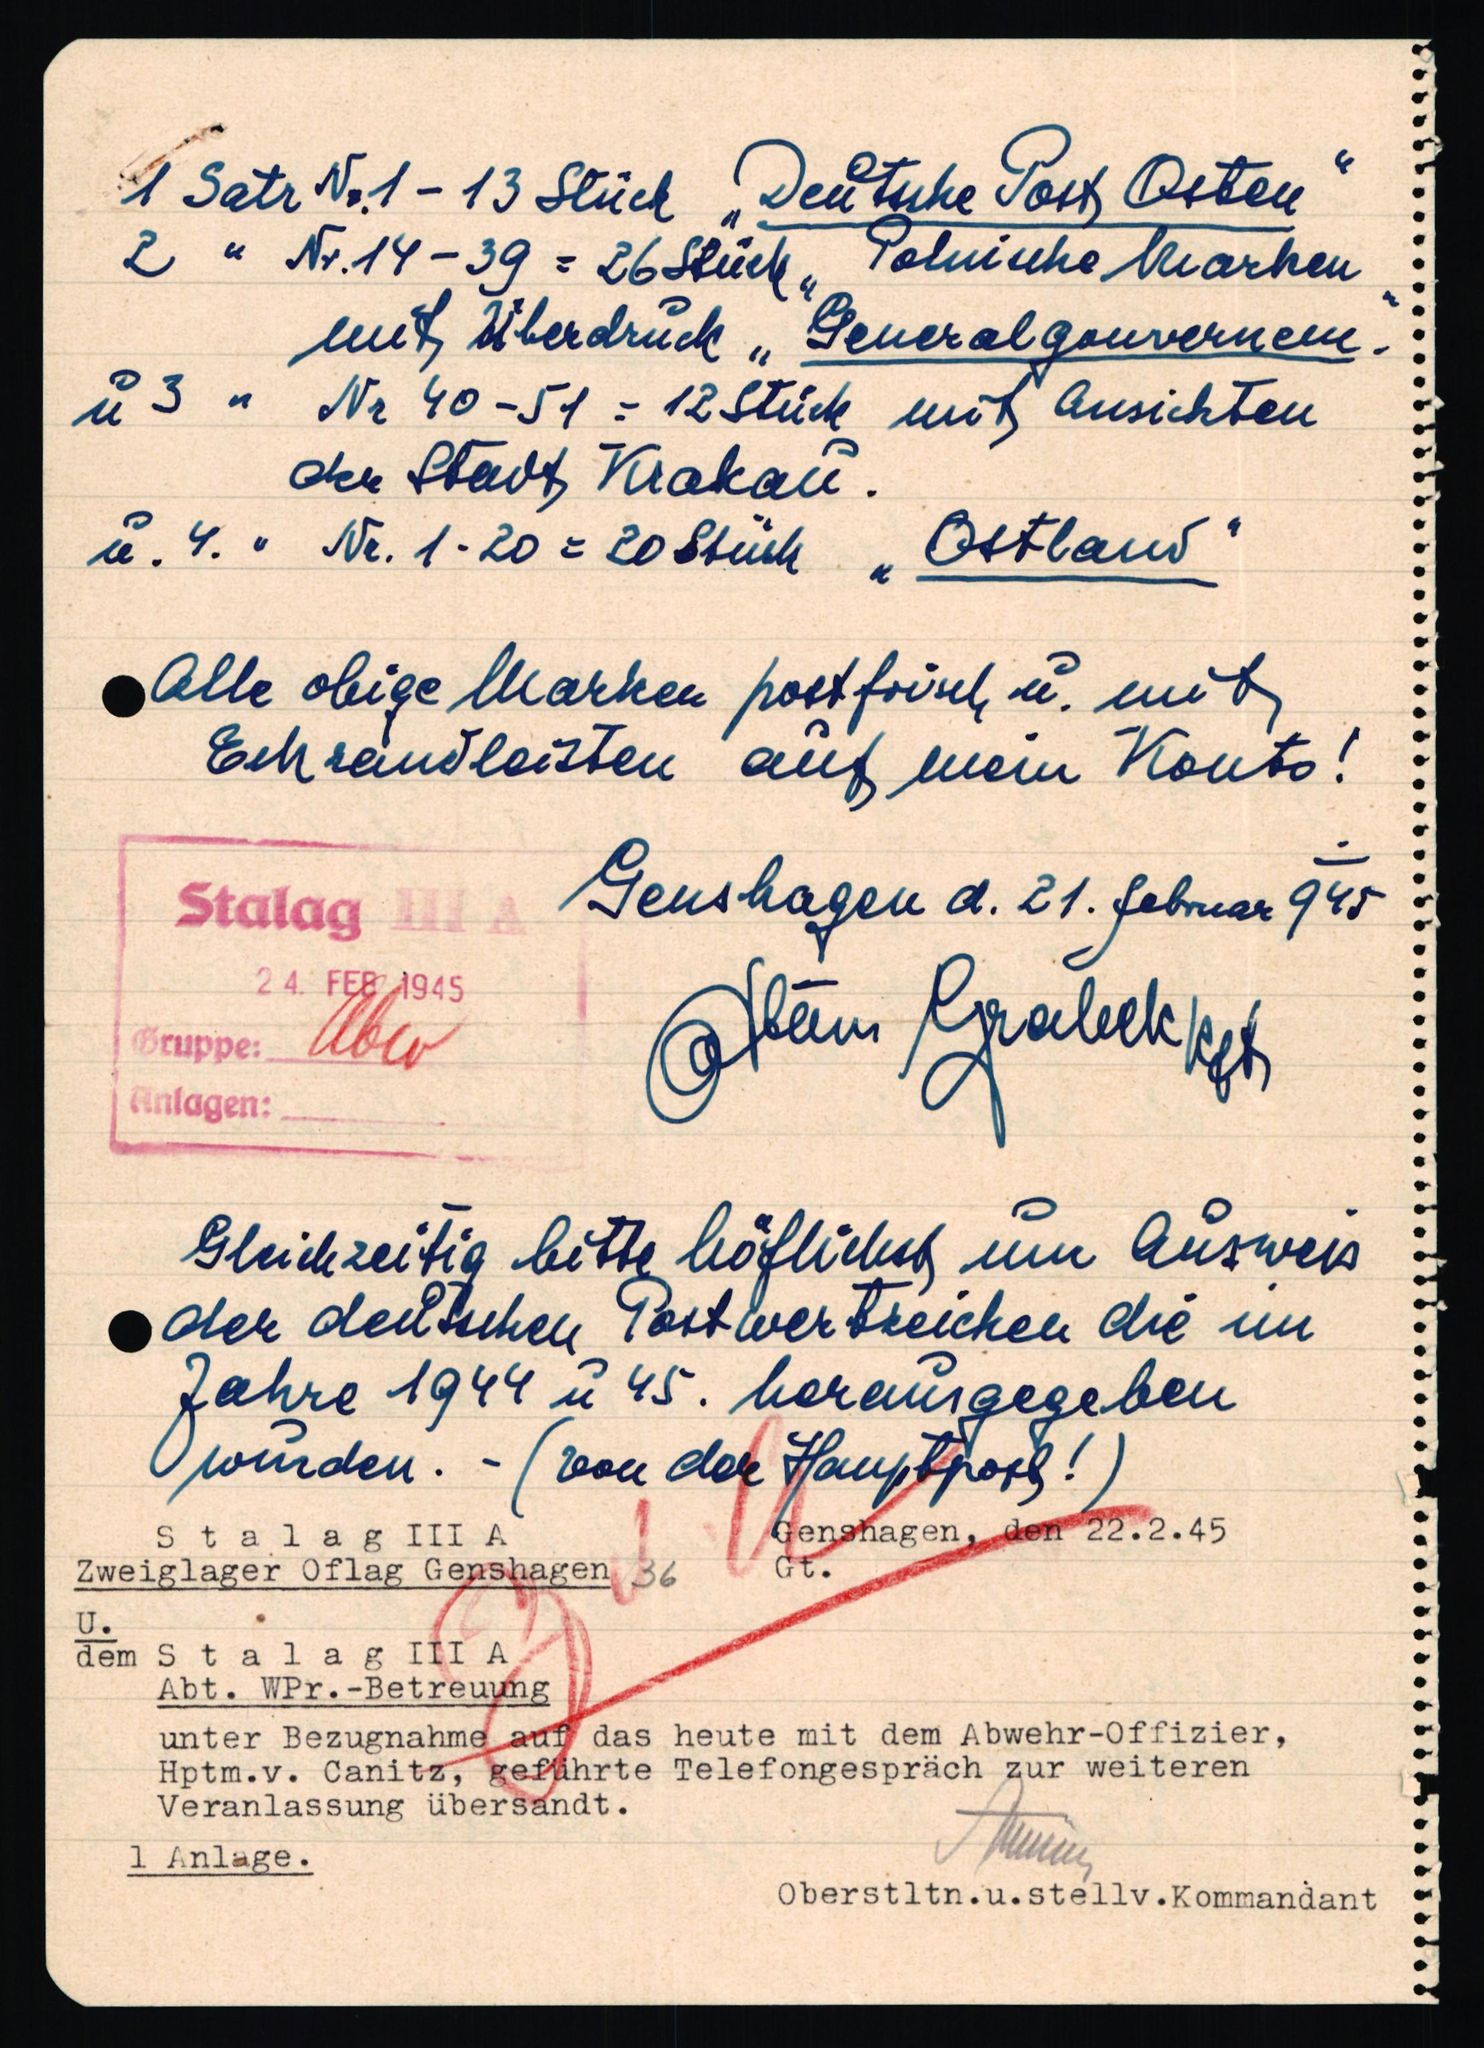 1 Satz Nr. 1 - 13 Stück „Deutsche Post Osten“
2 " Nr. 14 - 39 = 26 Stück „Polnische Marken
mit Überdruck „Generalgouvernem.“
u 3 " Nr 40 - 51 = 12 Stück mit Ansichten
der Stadt Krakau.
u. 4. " Nr. 1 - 20 = 20 Stück „Ostland“
Alle obige Marken postfrisch u. mit
Eckrandleisten auf mein Konto!
Stalag III A
24. FEB 1945
Gruppe: Abw
Anlagen:
Genshagen d. 21. Februar 945
Grabek
Gleichzeitig bitte höflichst um Ausweis
der deutschen Postwertzeichen die im
Jahre 1944 u 45. herausgegeben
wurden. - (von der Hauptpost!)
Stalag III A Genshagen, den 22.2.45
Zweiglager Oflag Genshagen 36 Gt.
U.
dem Stalag III A
Abt. WPr.-Betreuung
unter Bezugnahme auf das heute mit dem Abwehr-Offizier,
Hptm.v. Canitz, geführte Telefongespräch zur weiteren
Veranlassung übersandt.
1 Anlage.
Oberstltn.u.stellv.Kommandant